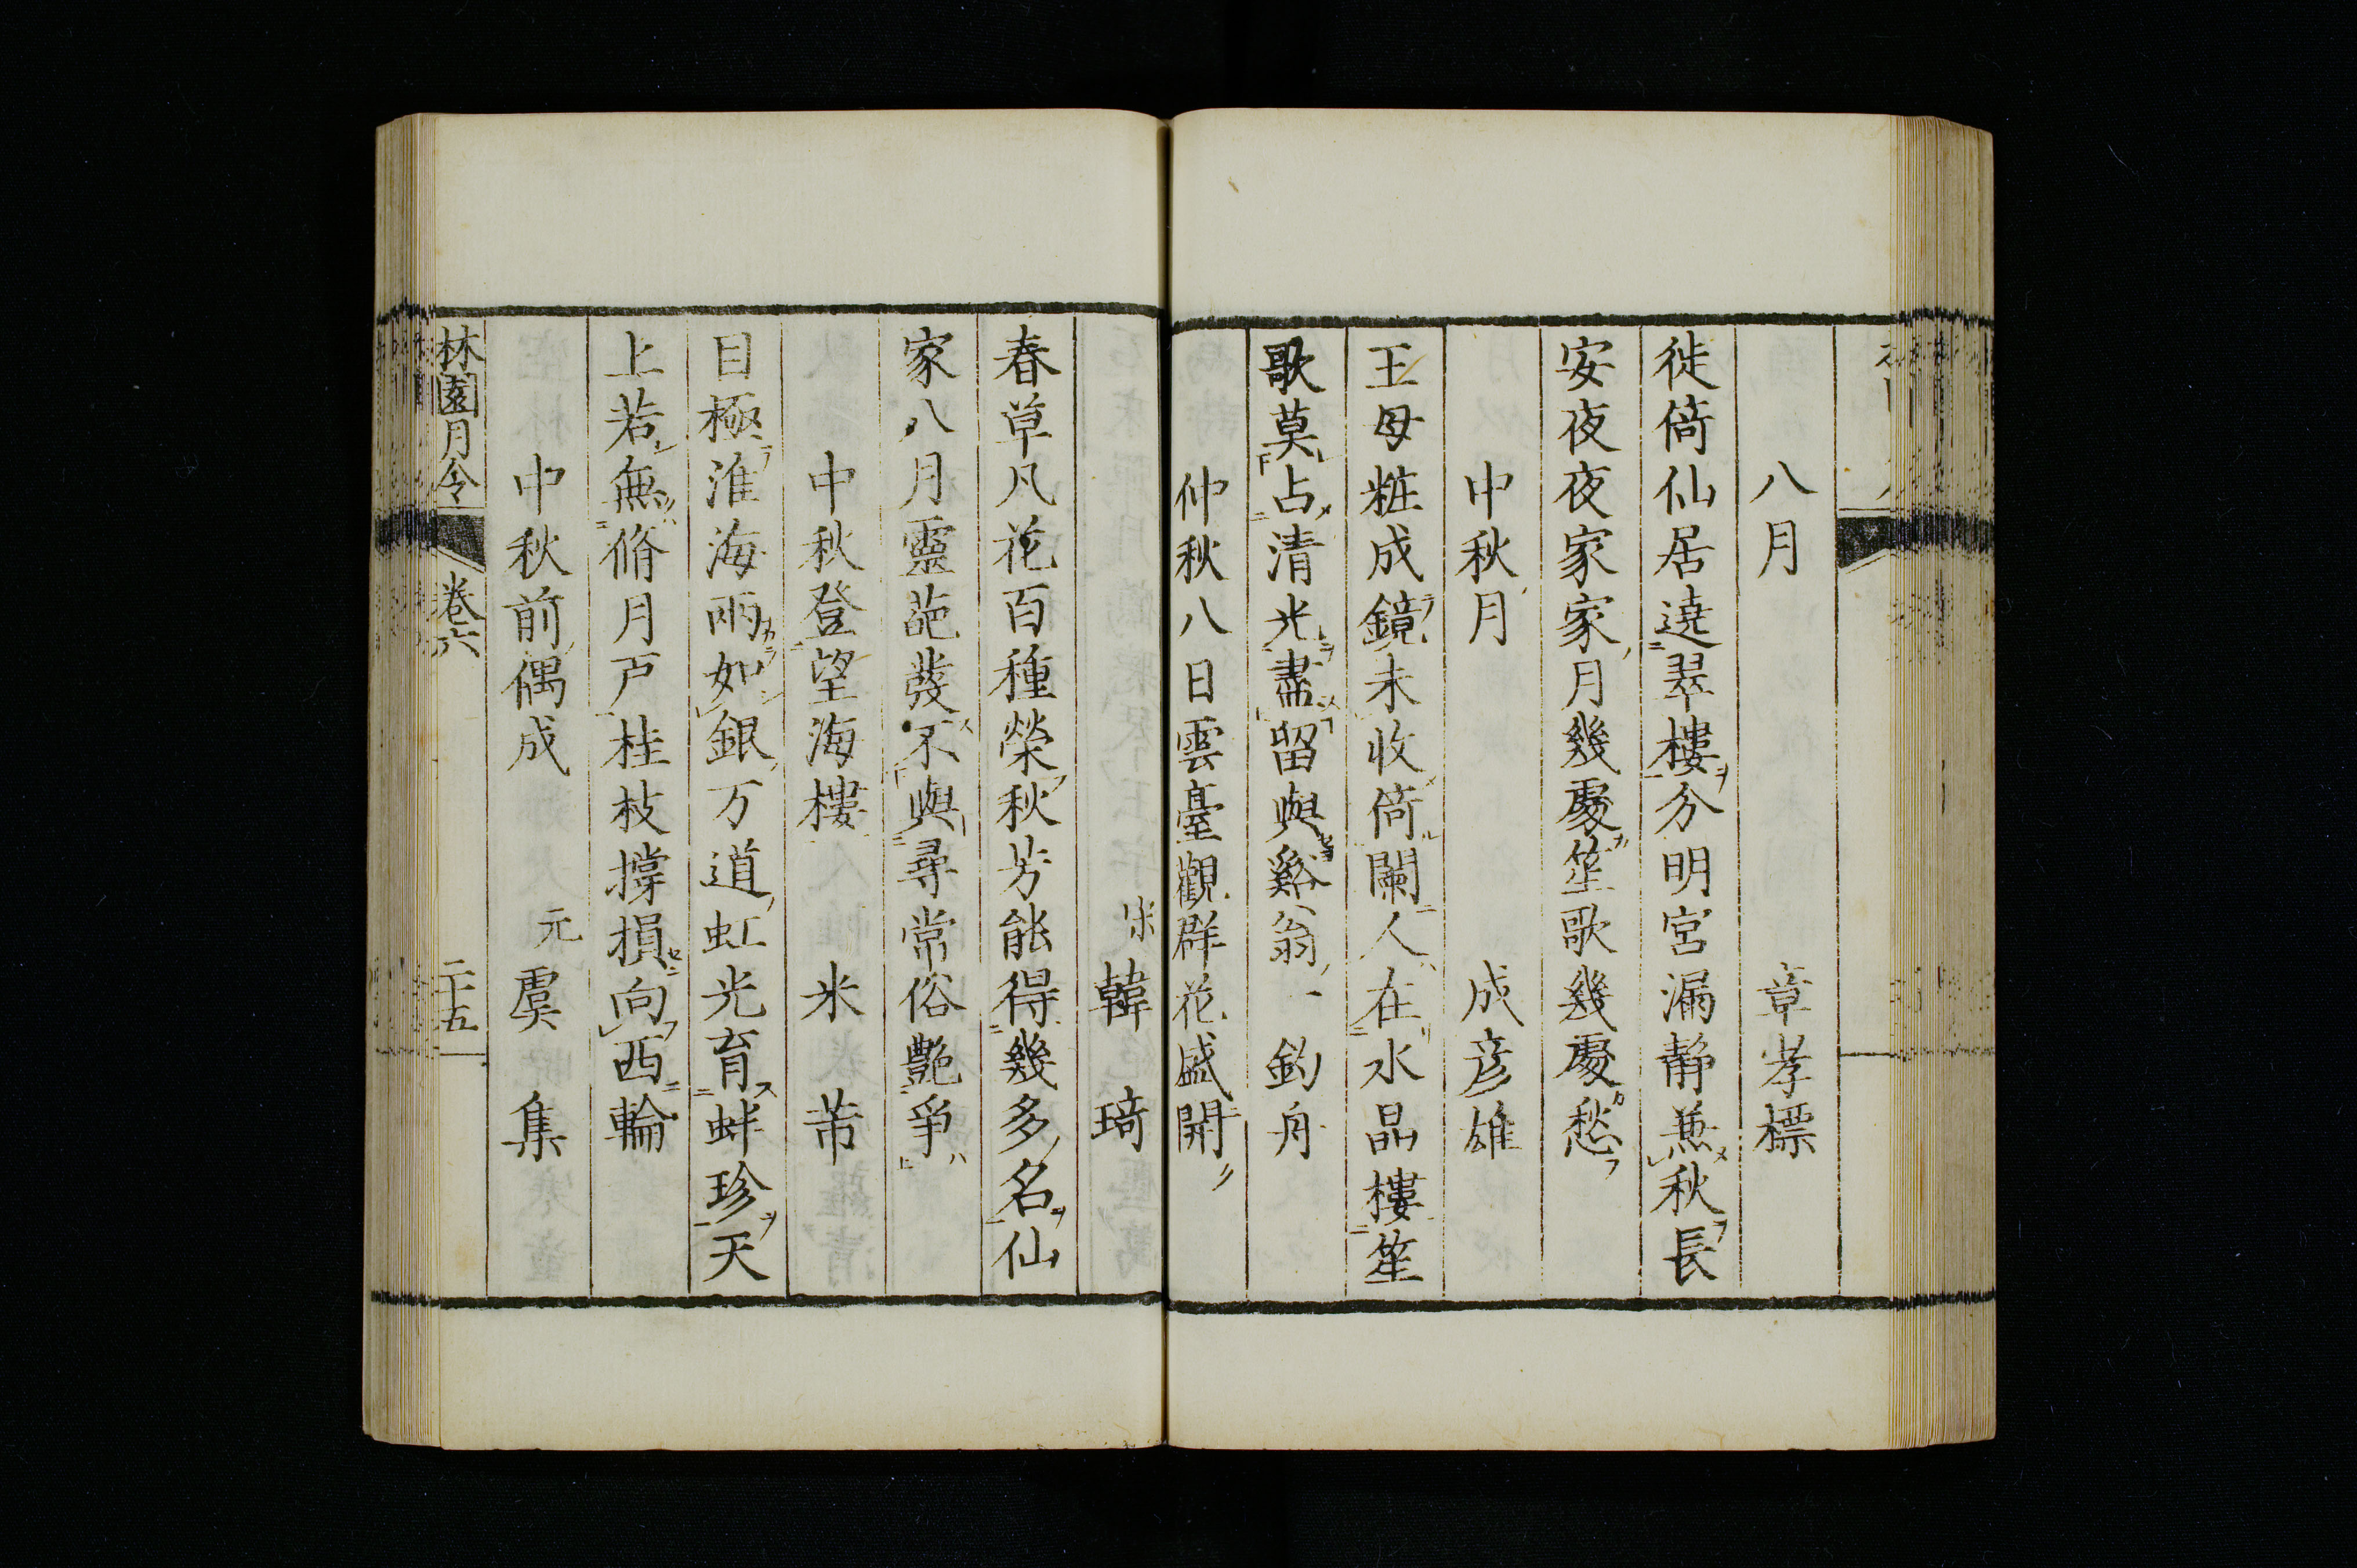 八月　章孝標
徙倚仙居遶翠樓分明宮漏靜兼秋長
安夜夜家家月幾處笙歌幾處愁
中秋月　成彥雄
王母粧成鏡未收倚闌人在水晶樓笙
歌莫占清光盡留與谿翁一釣舟
仲秋八日雲臺觀群花盛開
宋　韓琦
春草凡花百種榮秋芳能得幾多名仙
家八月靈葩發不與尋常俗艷爭
中秋登望海樓　米芾
目極淮海兩如銀万道虹光育蚌珍天
上若無脩月戶桂枝撐損向西輪
中秋前偶成　元　虞集
林園月令　卷六　二十五